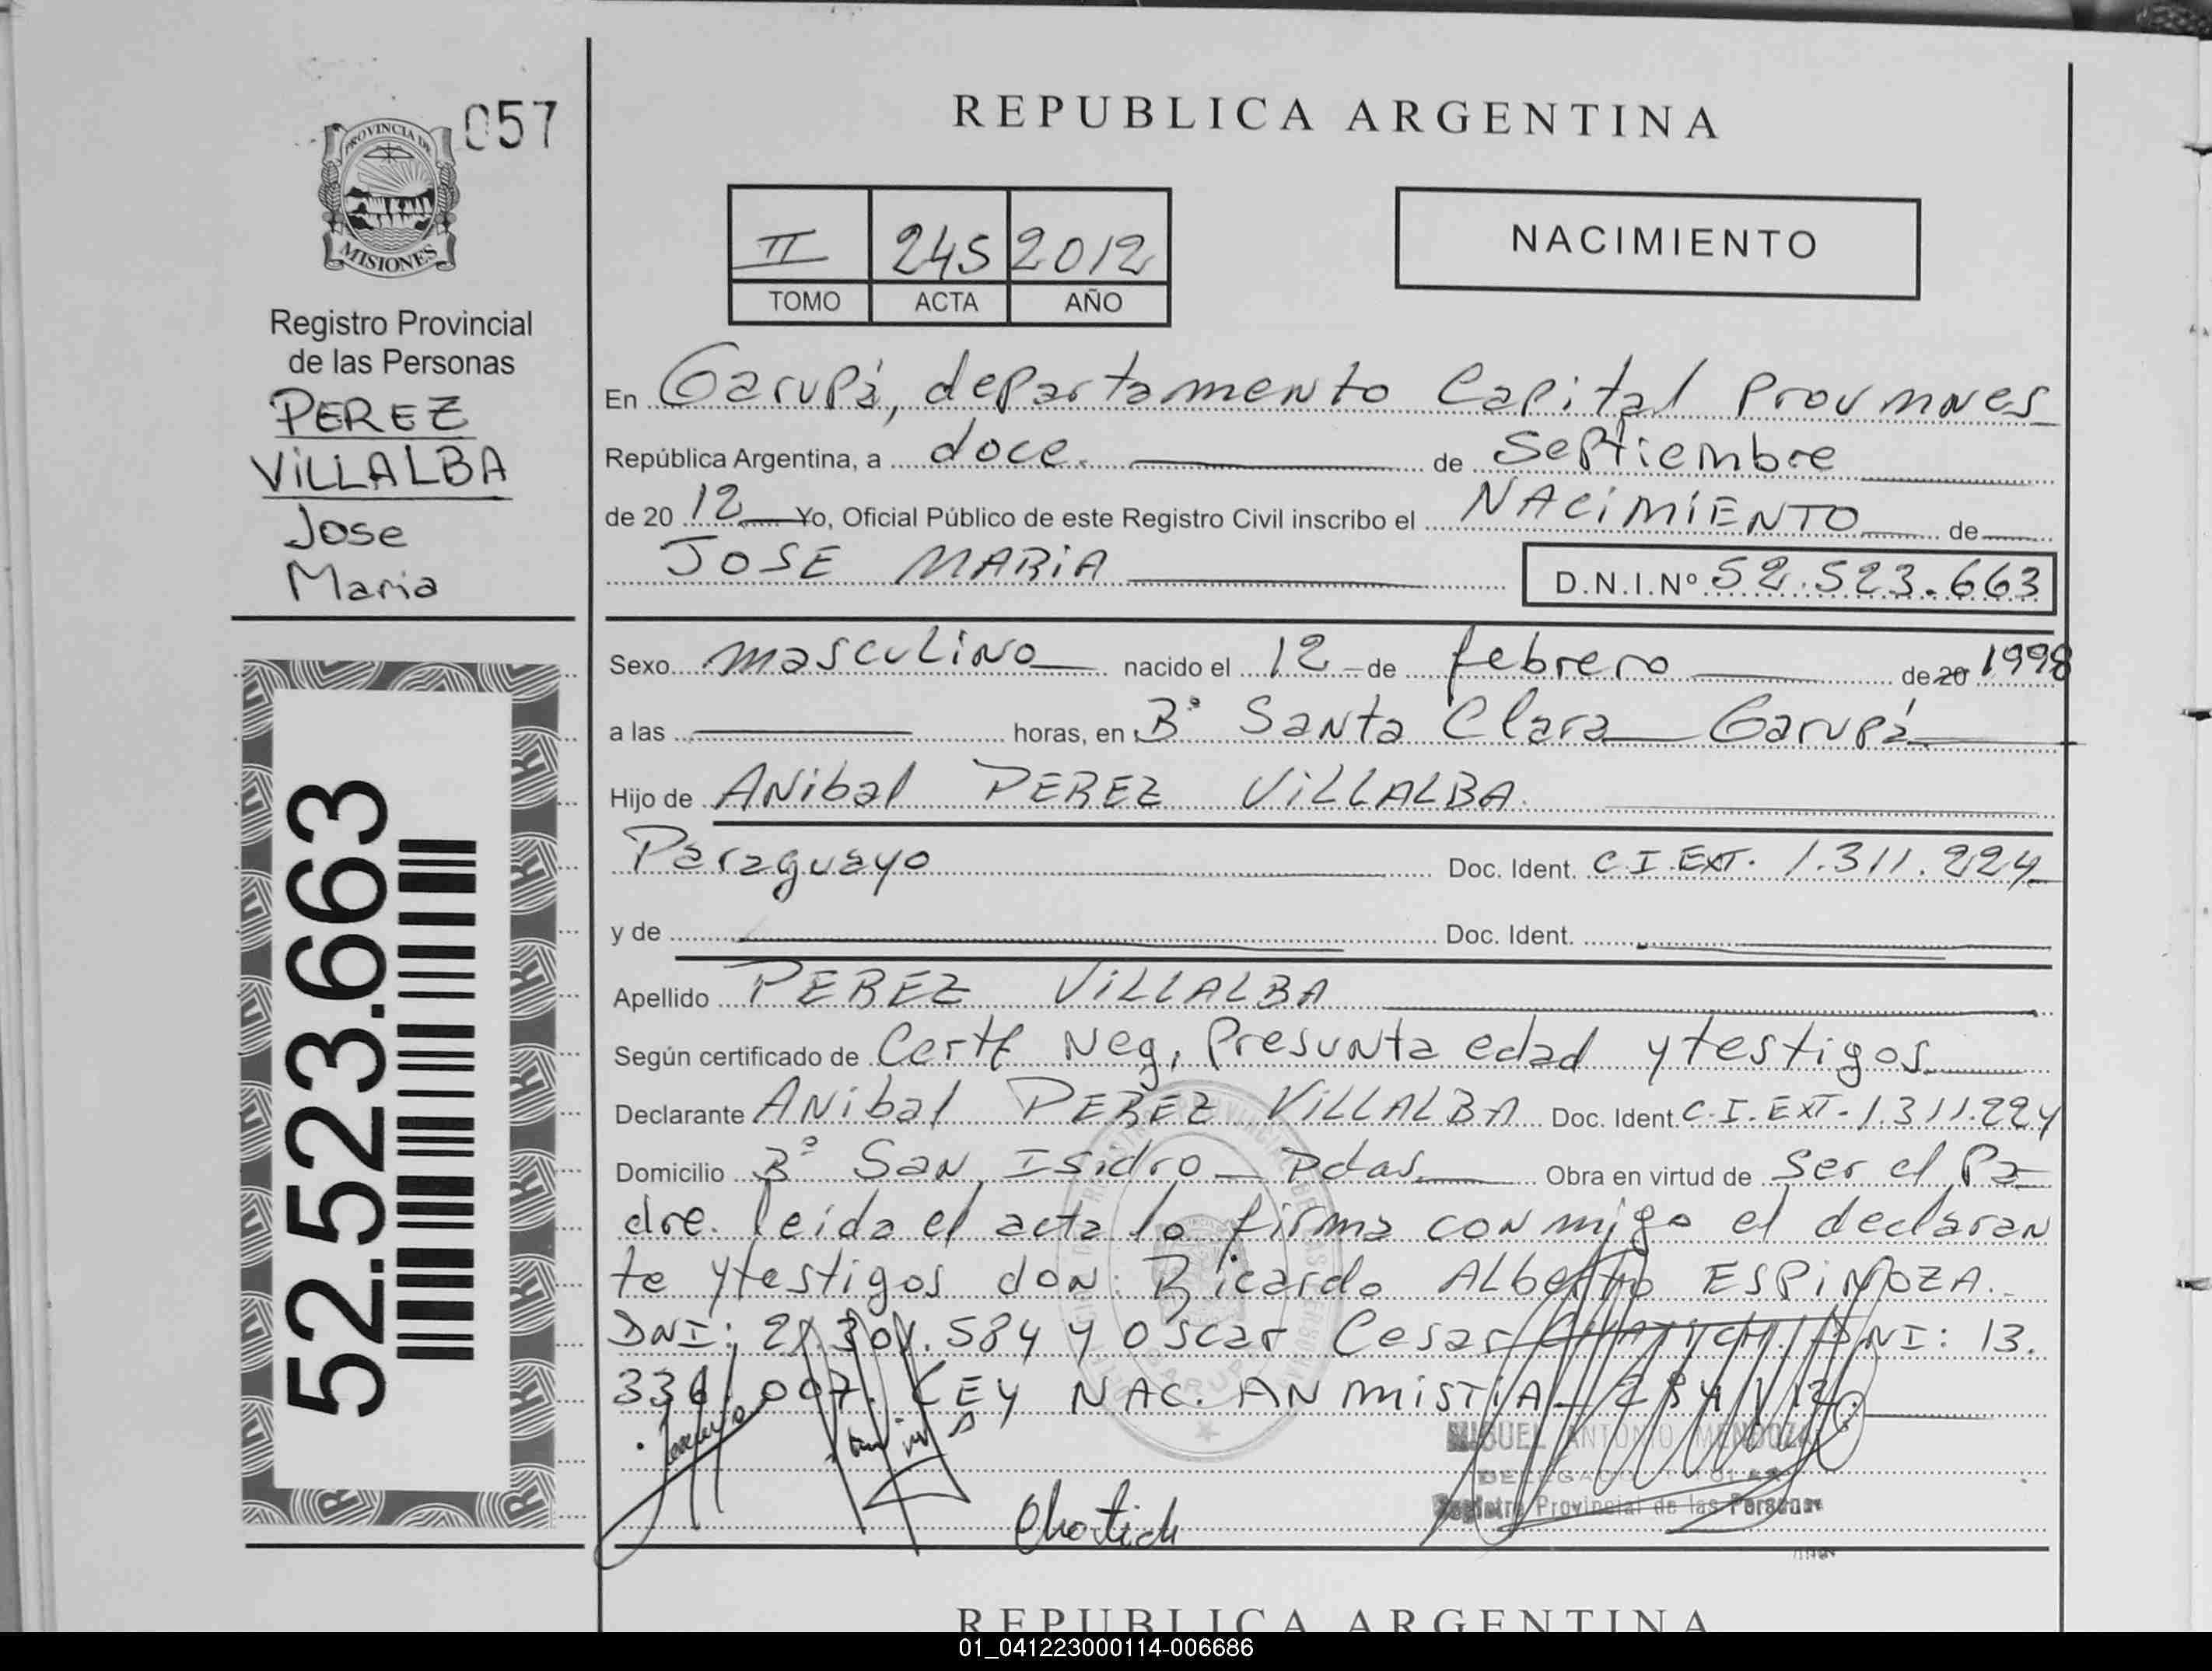 057
PROVINCIA DE
MISIONES
Registro Provincial
de las Personas
PEREZ
ViLLALBA
Jose
Maria
52.523.663
REPUBLICA ARGENTINA
II 245 2012
TOMO ACTA AÑO
NACIMIENTO
En Garupá, departamento Capital Prov mnes
República Argentina, a doce de Septiembre
de 20 12 Yo, Oficial Público de este Registro Civil inscribo el NACiMiENTO de
JOSE MARiA D.N.I.Nº 52.523.663
Sexo masculino nacido el 12 de febrero de 20 1998
a las horas, en Bº Santa Clara Garupá
Hijo de ANibal PEREZ ViLLALBA
Paraguayo Doc. Ident. C.I.EXT. 1.311.224
y de Doc. Ident.
Apellido PEREZ ViLLALBA
Según certificado de Certf Neg, Presunta edad y testigos
Declarante ANibal PEREZ ViLLALBA Doc. Ident. C.I.EXT-1.311.224
Domicilio Bº San Isidro - Pdas Obra en virtud de Ser el Pa
dre. leida el acta lo firma conmigo el declaran
te y testigos don: Ricardo ALberto ESPiNOZA.
DNI: .584 y Oscar Cesar DNI: 13.
336.007. LEY NAC. ANMiSTiA
Chortich
MIGUEL ANTONIO MENDOZA
DELEGADO TITULAR
Registro Provincial de las Personas
REPUBLICA ARGENTINA
01_041223000114-006686